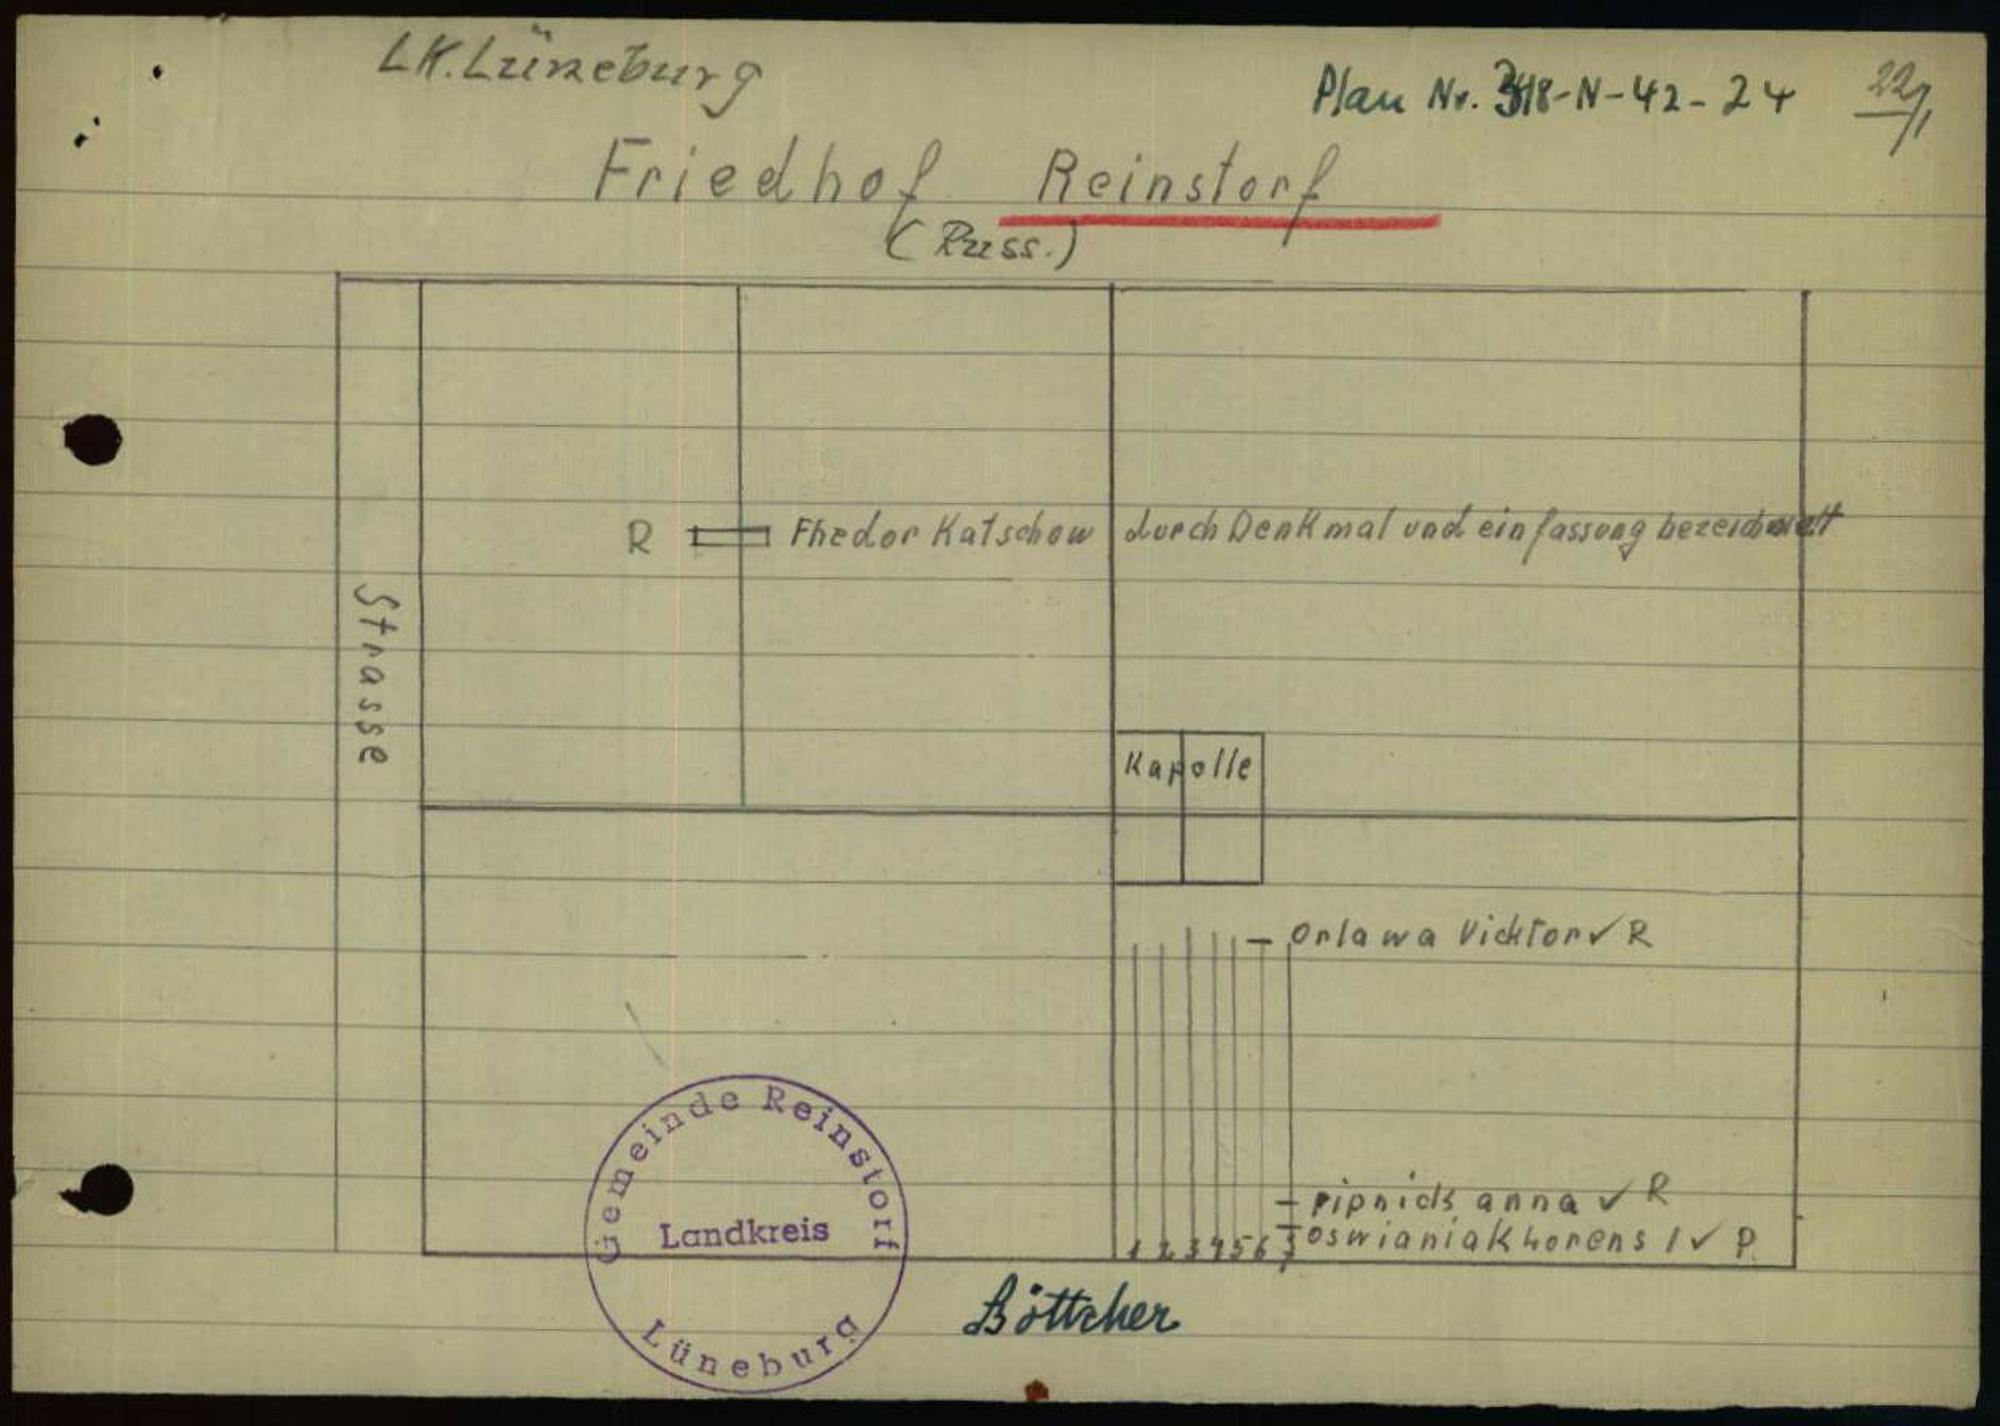 LK. Lüneburg
Plan Nr. 318-N-42-24
22/1
Friedhof Reinstorf
(Russ.)
R Fhedor Katschow durch Denkmal und einfassung bezeichnett
Strasse
Kapelle
Orlawa Vicktor ✓ R
pipnick anna ✓ R
oswianiak horens 1 ✓ P
1 2 3 4 5 6 7
Gemeinde Reinstorf
Landkreis
Lüneburg
Böttcher